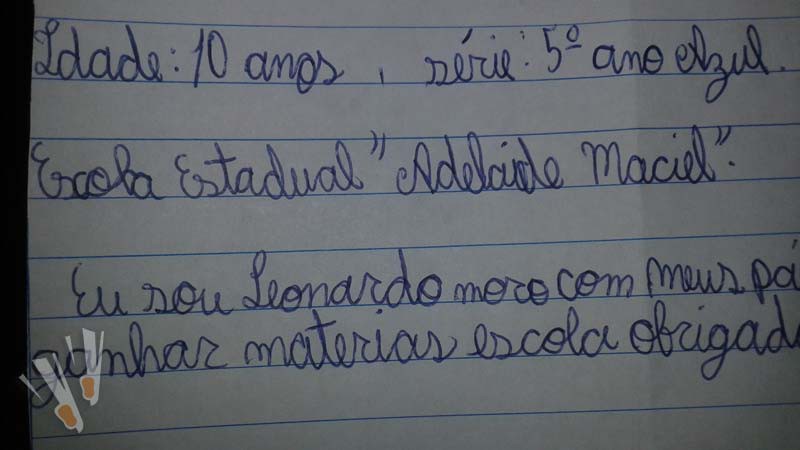 Idade: 10 anos, série: 5º ano Azul.
Escola Estadual "Adelaide Maciel".
Eu sou Leonardo moro com meus pa
ganhar materias escola obrigad